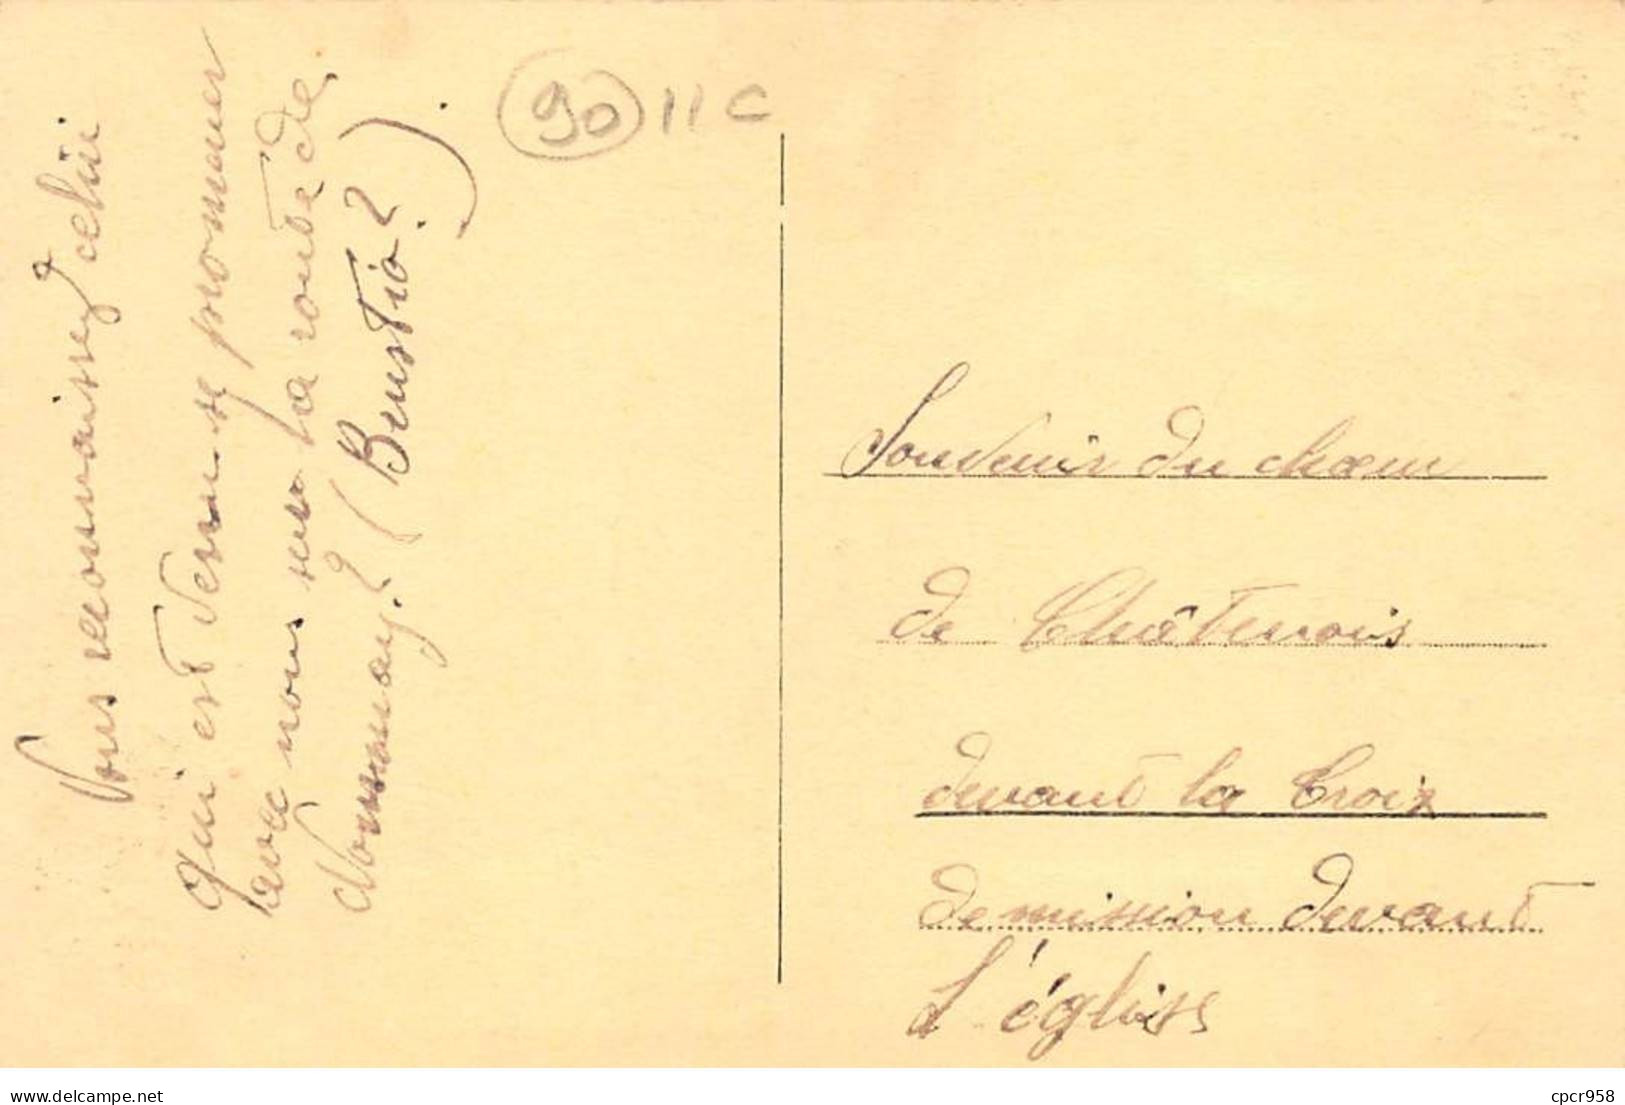 Vous reconnaissez celui
qui est venu se promener
avec nous sur la route de
Nommay? (Bustio?).
90 11 C
Souvenir du chœur
de Châtenois
devant la Croix
de mission devant
l'église
www.delcampe.net
cpcr958